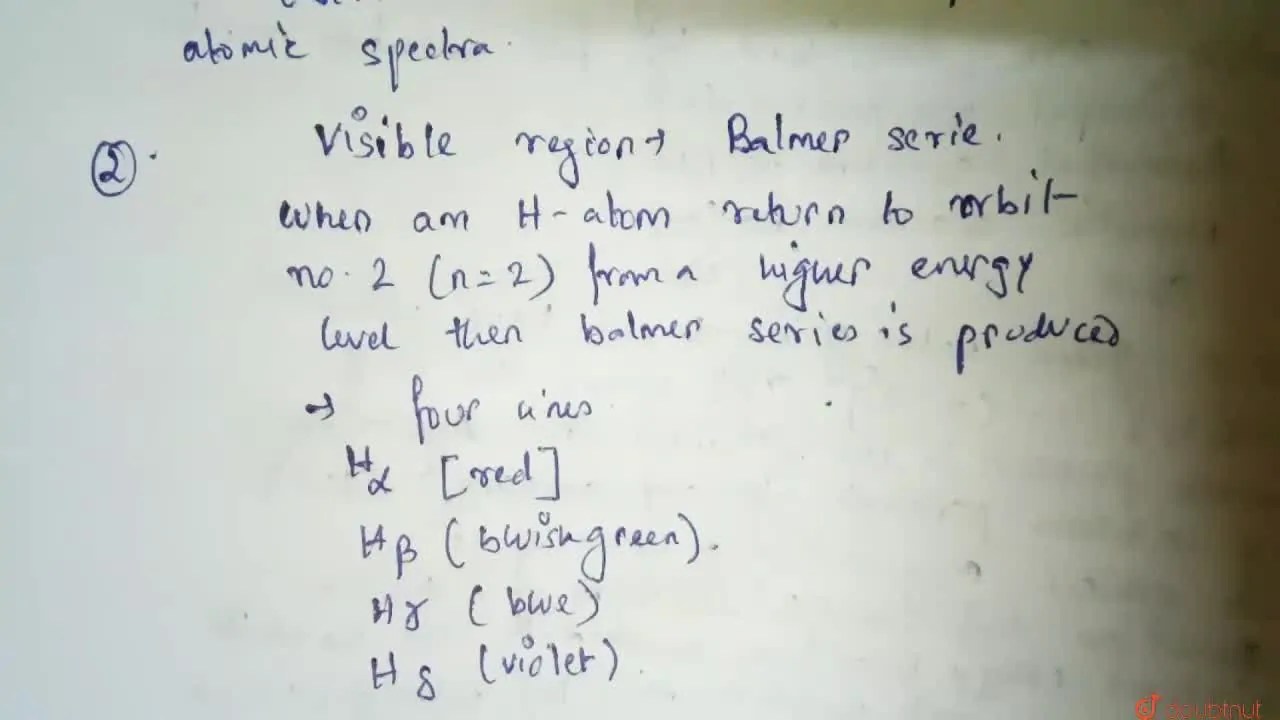 atomic spectra.
② Visible region → Balmer serie.
when am H-atom return to orbit
no. 2 (n=2) from a higher energy
level then balmer series is produced
→ four lines
Hα [red]
Hβ (bluish green).
Hγ (blue)
Hδ (violet).
doubtnut